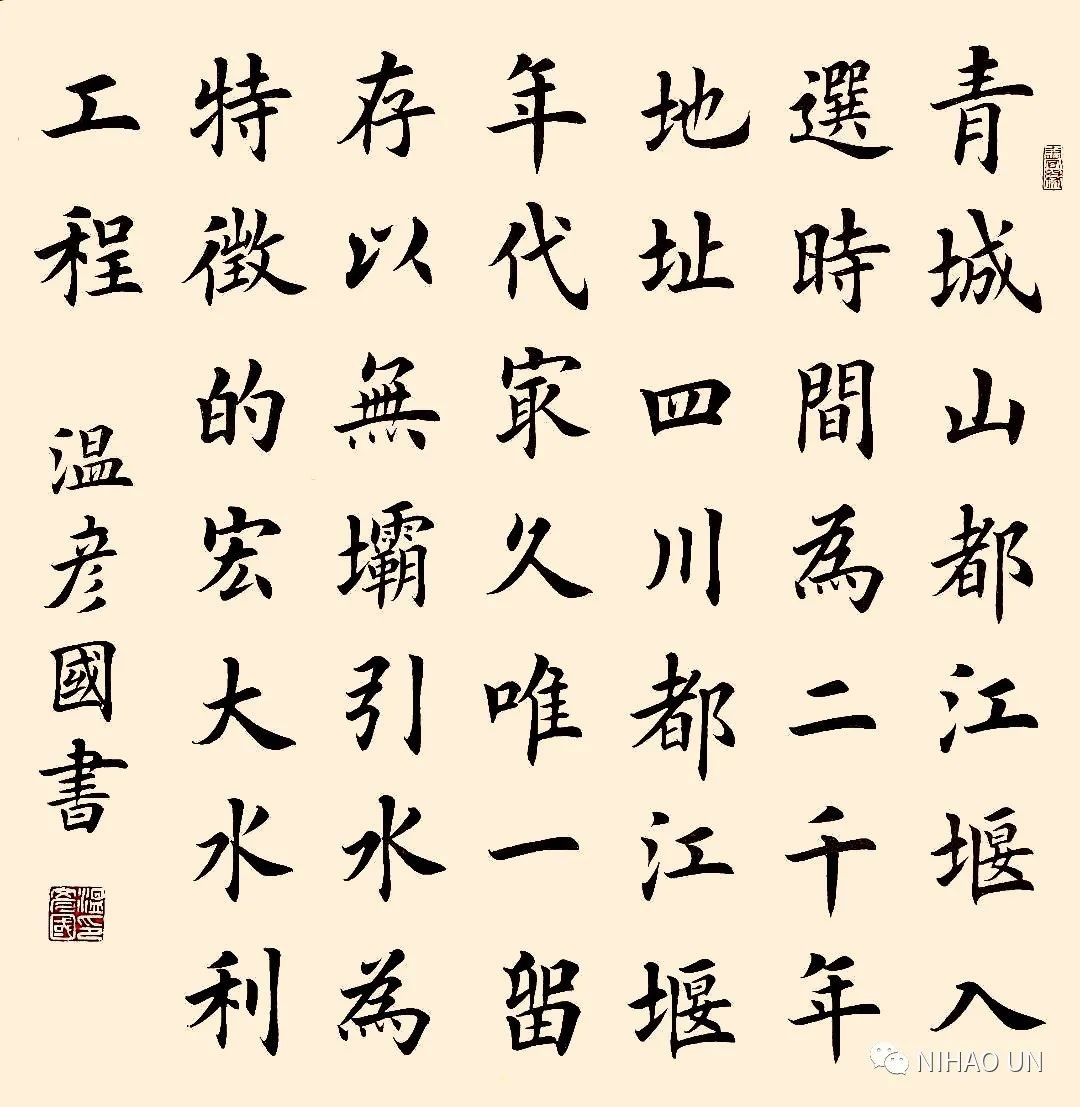 青城山都江堰入
選時間為二千年
地址四川都江堰
年代冣久唯一留
存以無壩引水為
特徵的宏大水利
工程
温彦國書
溫彥國印
NIHAO UN